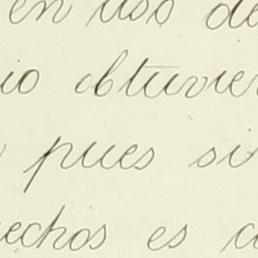 en uso de
io obtuvier
pues si
echos es